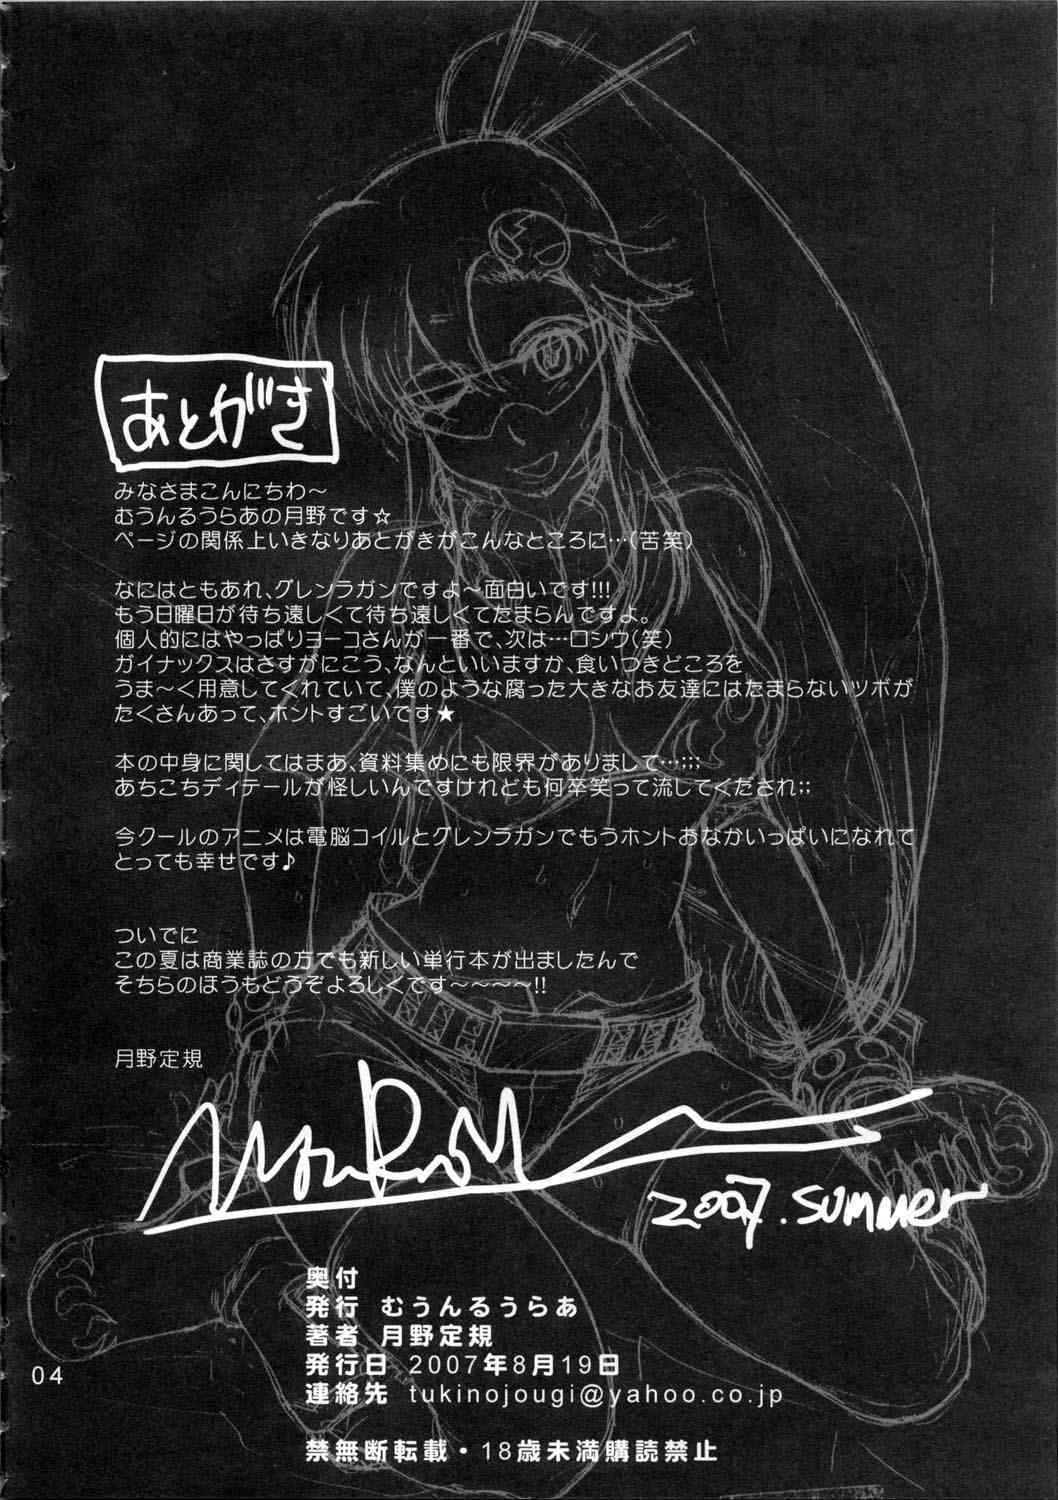 あとがき
みなさまこんにちわ～
むうんるうらあの月野です☆
ページの関係上いきなりあとがきがこんなところに…(苦笑)
なにはともあれ、グレンラガンですよ～面白いです!!!
もう日曜日が待ち遠しくて待ち遠しくてたまらんですよ。
個人的にはやっぱりヨーコさんが一番で、次は…ロシウ(笑)
ガイナックスはさすがにこう、なんといいますか、食いつきどころを
うま～く用意してくれていて、僕のような腐った大きなお友達にはたまらないツボが
たくさんあって、ホントすごいです★
本の中身に関してはまあ、資料集めにも限界がありまして…;;;
あちこちディテールが怪しいんですけれども何卒笑って流してくだされ;;
今クールのアニメは電脳コイルとグレンラガンでもうホントおなかいっぱいになれて
とっても幸せです♪
ついでに
この夏は商業誌の方でも新しい単行本が出ましたんで
そちらのほうもどうぞよろしくです～～～～!!
月野定規
2007.summer
奥付
発行 むうんるうらあ
著者 月野定規
発行日 2007年8月19日
連絡先 tukinojougi@yahoo.co.jp
04
禁無断転載・18歳未満購読禁止